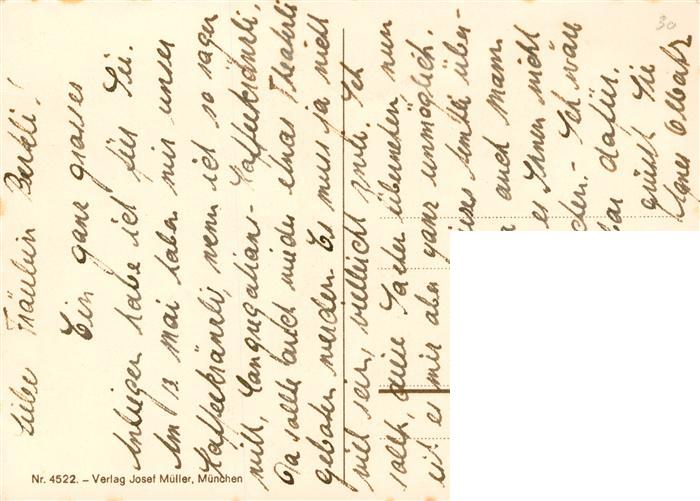 Liebe Fräulein Berkli!
Ein ganz grosses
Anliegen habe ich für Sie.
Am 12 Mai haben wir unser
Kaffeekränzli, wenn ich so sagen
will, Kongregations-Kaffeekränzli.
Da sollte auch wieder etwas Theäterli
geboten werden. Es muss ja nicht
viel sein, vielleicht Ich
sollte, diese Sache übernehmen, nun
ist es mir aber ganz unmöglich.
über-
auch mam.
es Ihnen nicht
Ich wäre
bar dafür.
grüsst Sie
Agnes
30
Nr. 4522. – Verlag Josef Müller, München